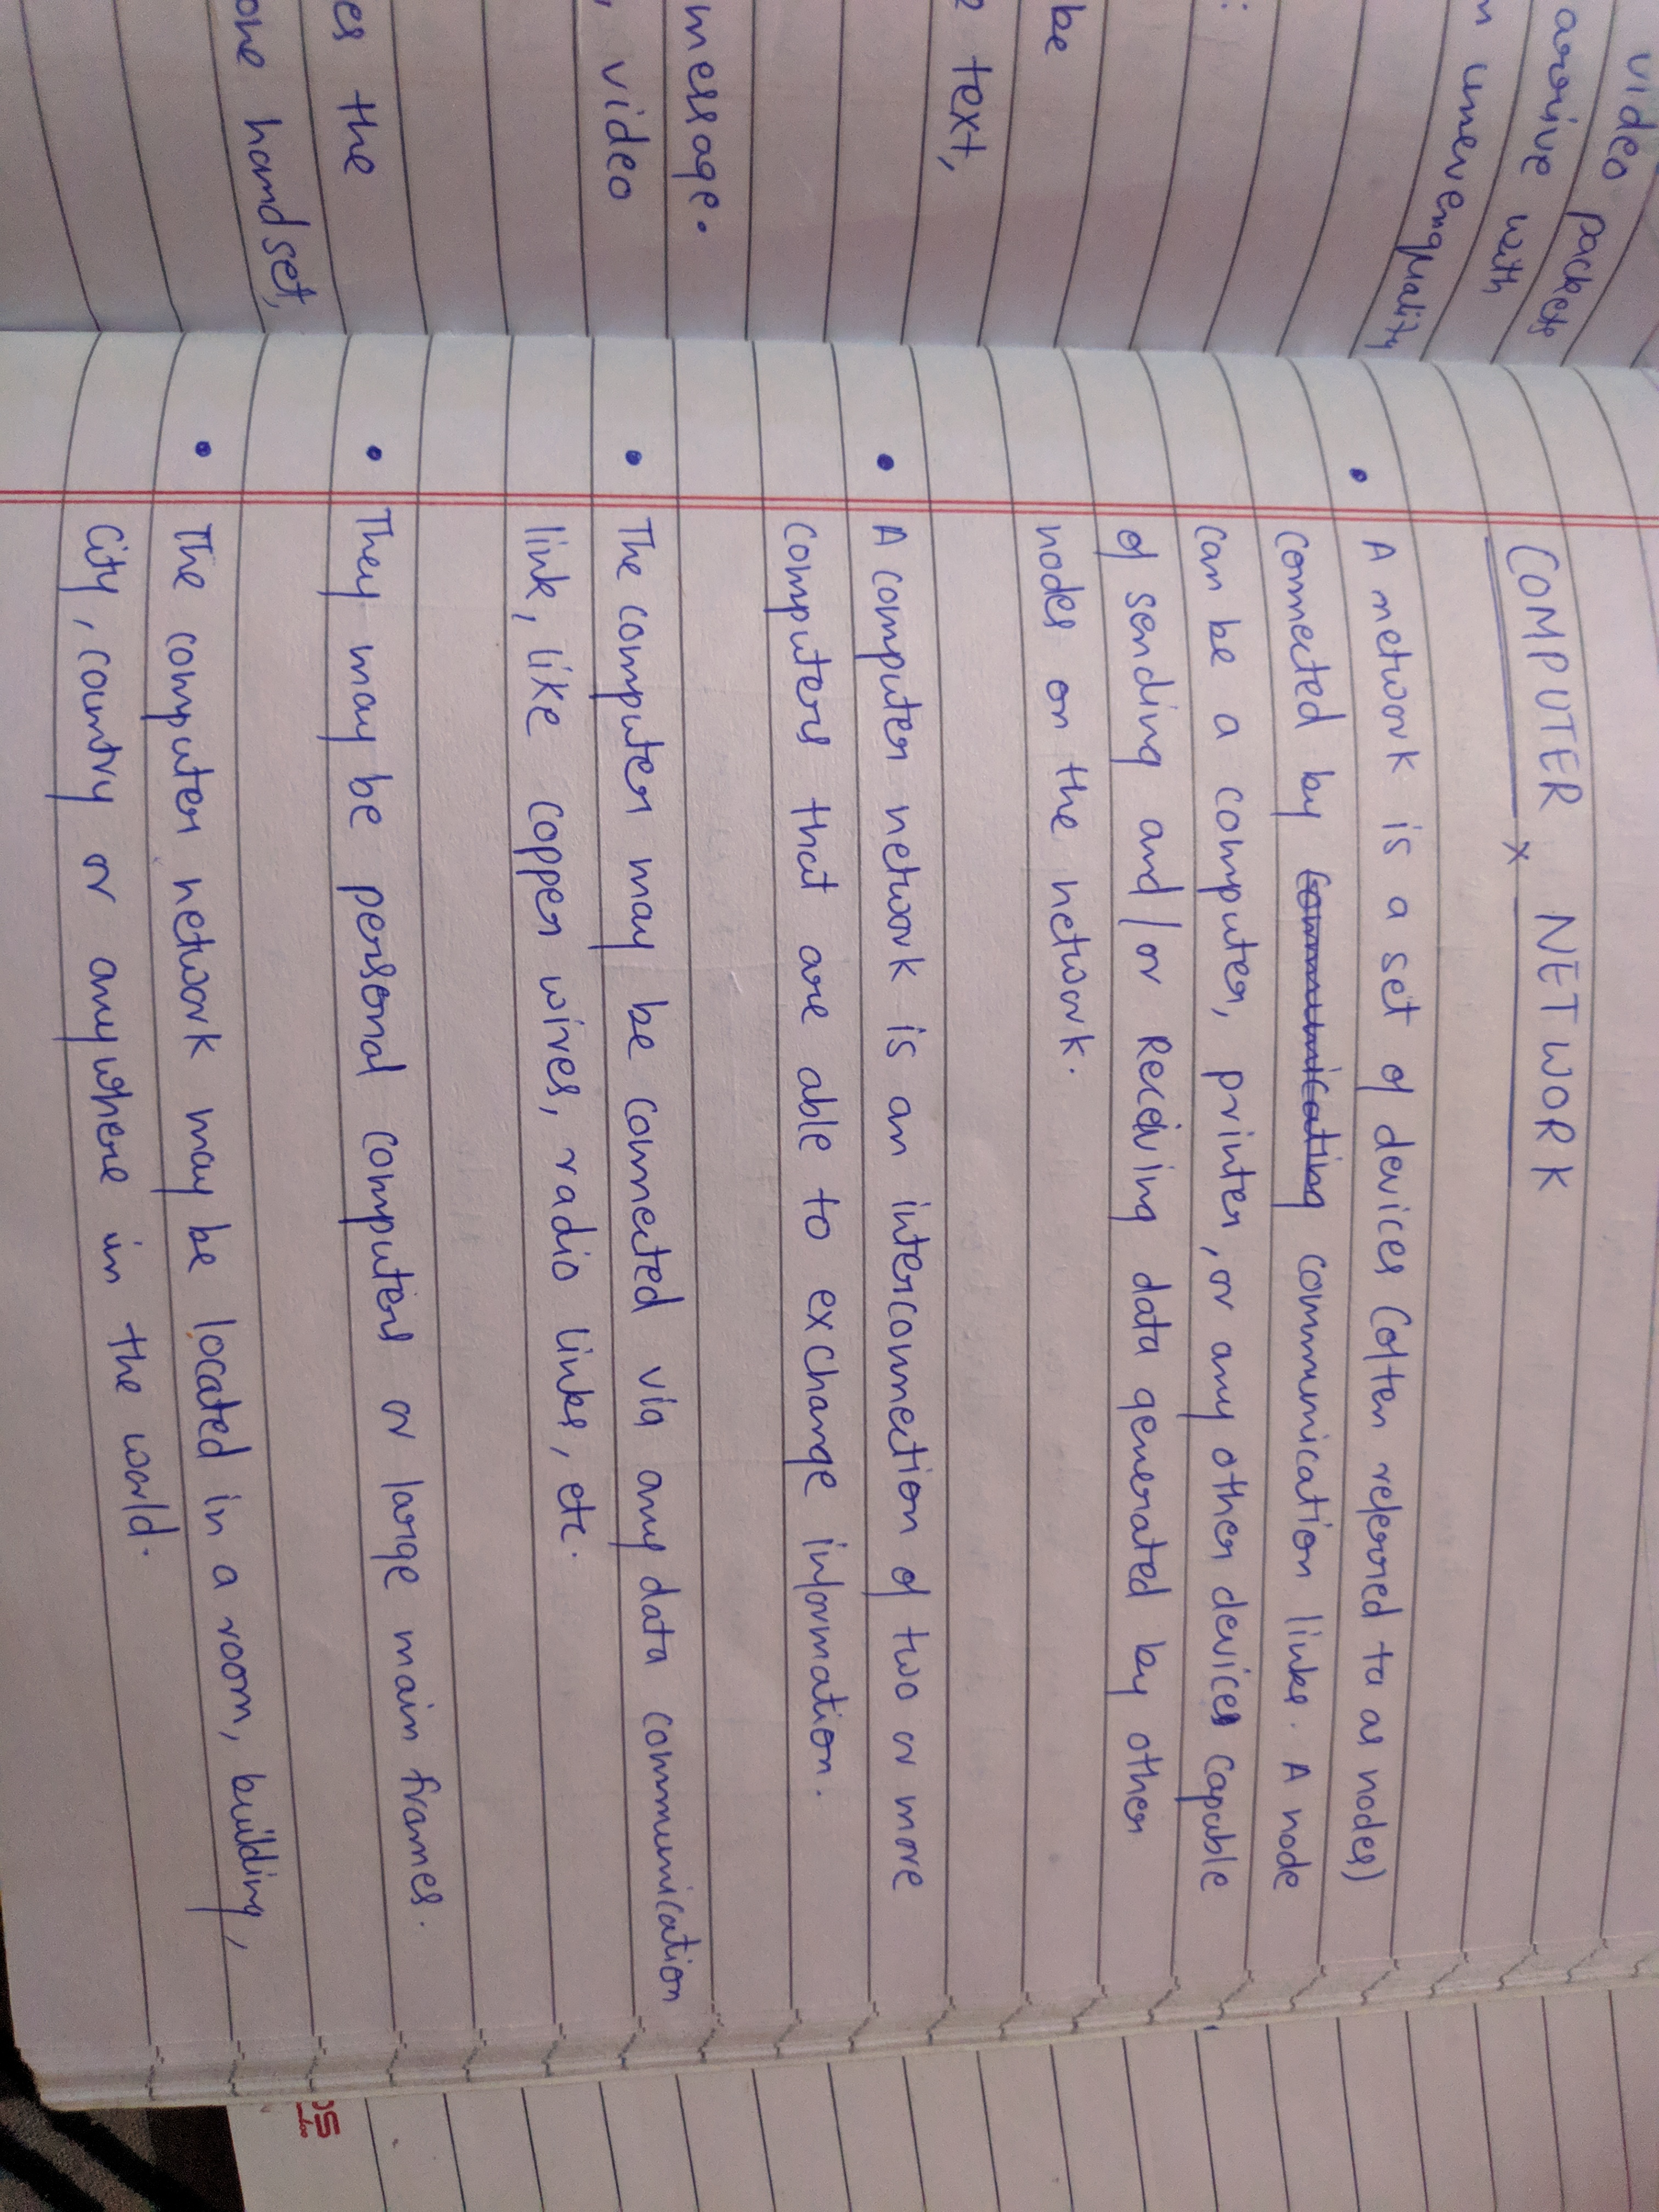 video packets
arrive with
unevenquality
:
be
text,
message.
, video
es the
one handset,
COMPUTER x NETWORK
• A network is a set of devices (often referred to as nodes)
connected by communicating communication links. A node
can be a computer, printer, or any other devices capable
of sending and/or Receiving data generated by other
nodes on the network.
• A computer network is an interconnection of two or more
computers that are able to exchange information.
• The computer may be connected via any data communication
link, like copper wires, radio links, etc.
• They may be personal computers or large main frames.
• The computer network may be located in a room, building,
City, country or anywhere in the world.